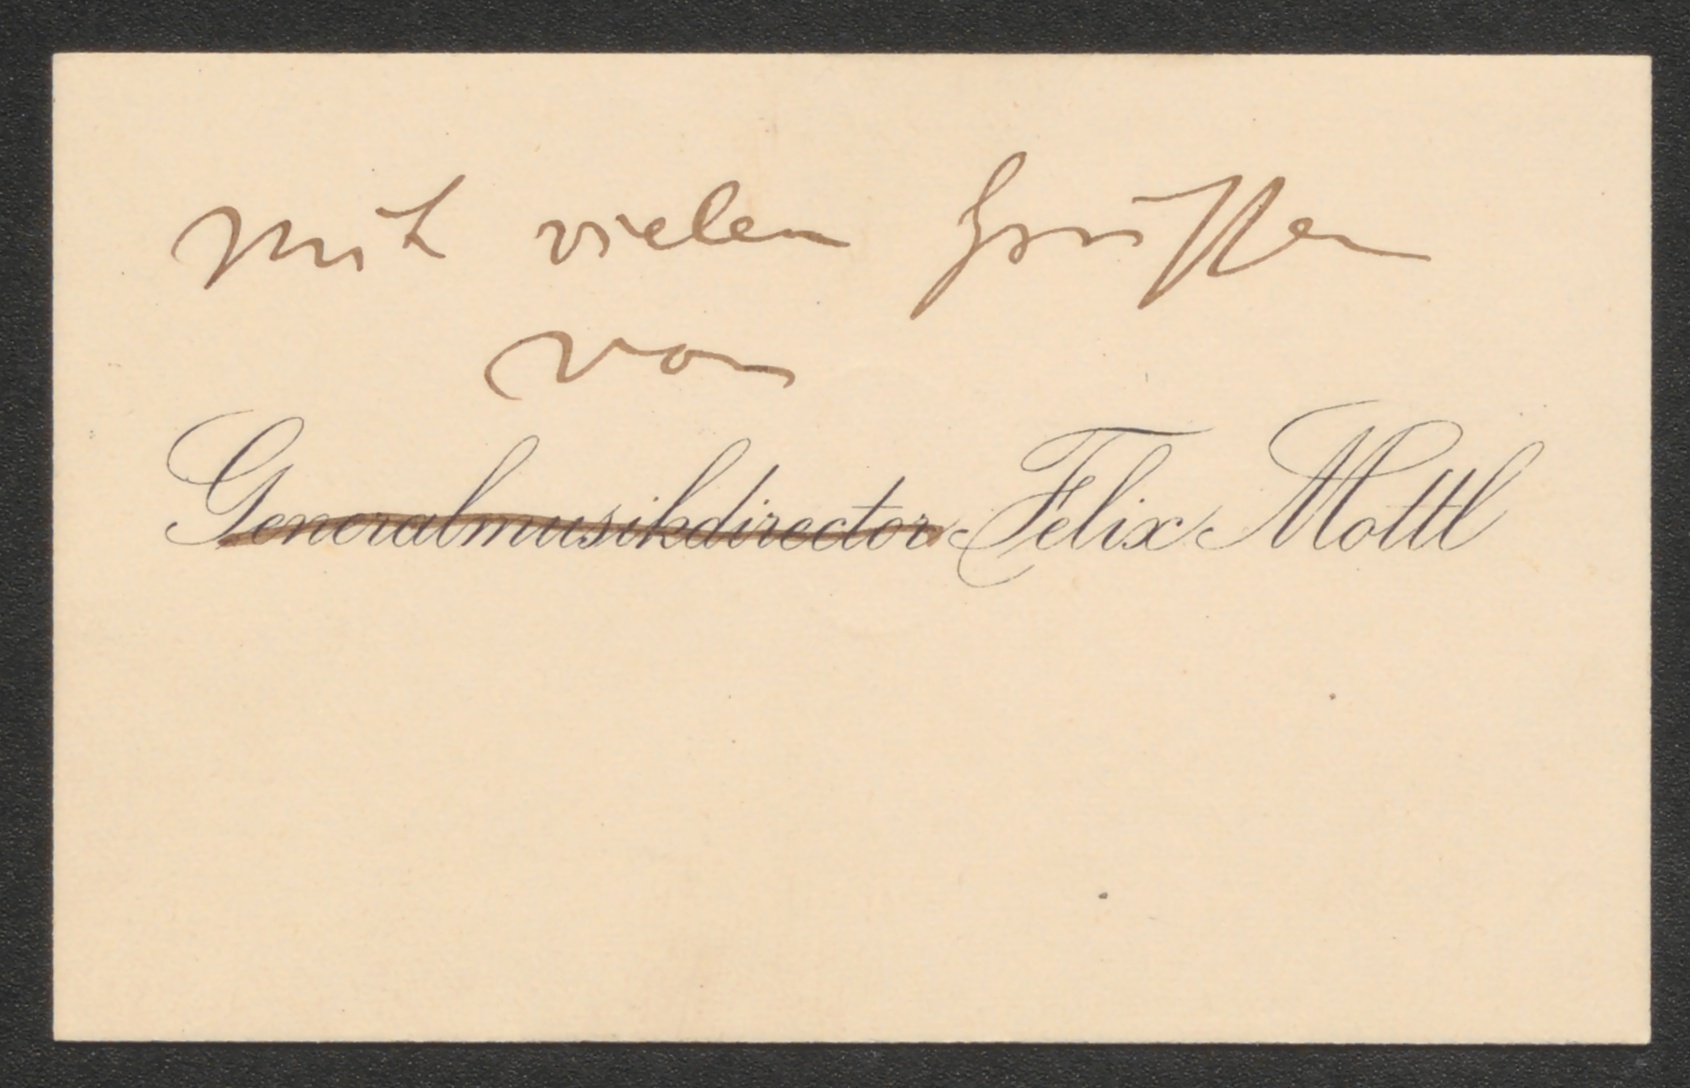 mit vielen Grüssen
von
Generalmusikdirector Felix Mottl